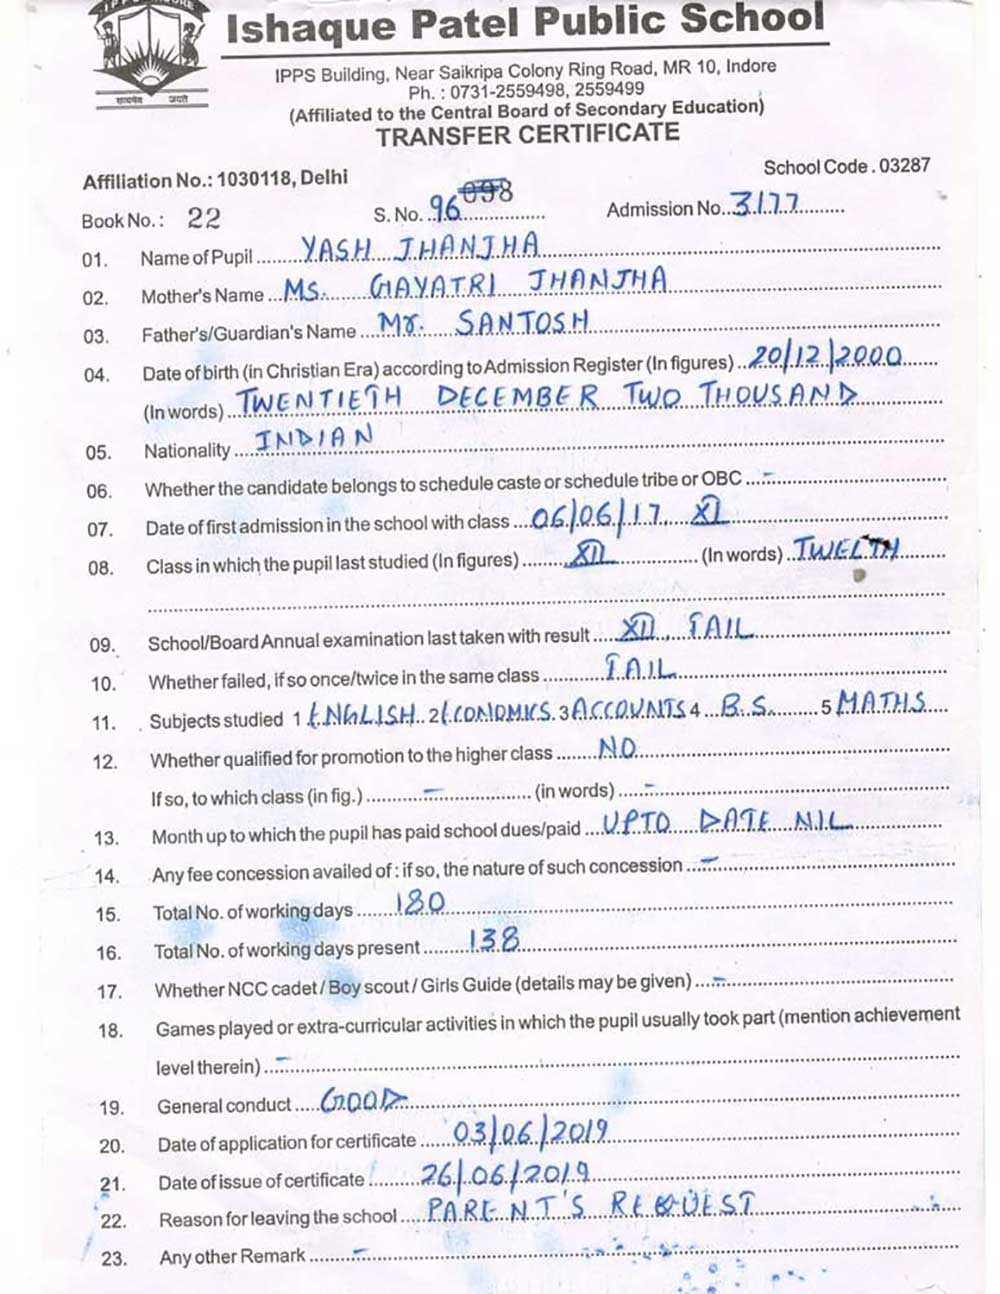 IPPS INDORE
सत्यमेव जयते
Ishaque Patel Public School
IPPS Building, Near Saikripa Colony Ring Road, MR 10, Indore
Ph. : 0731-2559498, 2559499
(Affiliated to the Central Board of Secondary Education)
TRANSFER CERTIFICATE
School Code . 03287
Affiliation No.: 1030118, Delhi
Book No.: 22 S. No. 96 098 Admission No. 3177
01. Name of Pupil YASH JHANJHA
02. Mother's Name Ms. GAYATRI JHANJHA
03. Father's/Guardian's Name Mr. SANTOSH
04. Date of birth (in Christian Era) according to Admission Register (In figures) 20/12/2000
(In words) TWENTIETH DECEMBER TWO THOUSAND
05. Nationality INDIAN
06. Whether the candidate belongs to schedule caste or schedule tribe or OBC -
07. Date of first admission in the school with class 06/06/17, XI
08. Class in which the pupil last studied (In figures) XII (In words) TWELTH
09. School/Board Annual examination last taken with result XII, FAIL
10. Whether failed, if so once/twice in the same class FAIL
11. Subjects studied 1 ENGLISH 2 ECONOMICS 3 ACCOUNTS 4 B.S. 5 MATHS
12. Whether qualified for promotion to the higher class NO
If so, to which class (in fig.) - (in words) -
13. Month up to which the pupil has paid school dues/paid UPTO DATE NIL
14. Any fee concession availed of : if so, the nature of such concession -
15. Total No. of working days 180
16. Total No. of working days present 138
17. Whether NCC cadet / Boy scout / Girls Guide (details may be given) -
18. Games played or extra-curricular activities in which the pupil usually took part (mention achievement
level therein) -
19. General conduct GOOD
20. Date of application for certificate 03/06/2019
21. Date of issue of certificate 26/06/2019
22. Reason for leaving the school PARENT'S REQUEST
23. Any other Remark -